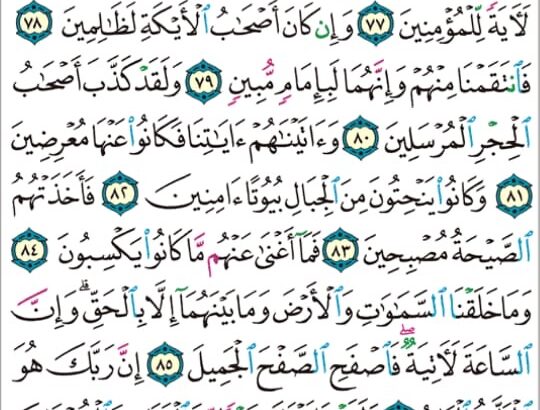 لَأٓيَةٗ لِّلۡمُؤۡمِنِينَ ٧٧ وَإِن كَانَ أَصۡحَٰبُ ٱلۡأَيۡكَةِ لَظَٰلِمِينَ ٧٨
فَٱنتَقَمۡنَا مِنۡهُمۡ وَإِنَّهُمَا لَبِإِمَامٖ مُّبِينٖ ٧٩ وَلَقَدۡ كَذَّبَ أَصۡحَٰبُ
ٱلۡحِجۡرِ ٱلۡمُرۡسَلِينَ ٨٠ وَءَاتَيۡنَٰهُمۡ ءَايَٰتِنَا فَكَانُواْ عَنۡهَا مُعۡرِضِينَ
٨١ وَكَانُواْ يَنۡحِتُونَ مِنَ ٱلۡجِبَالِ بُيُوتًا ءَامِنِينَ ٨٢ فَأَخَذَتۡهُمُ
ٱلصَّيۡحَةُ مُصۡبِحِينَ ٨٣ فَمَآ أَغۡنَىٰ عَنۡهُم مَّا كَانُواْ يَكۡسِبُونَ ٨٤
وَمَا خَلَقۡنَا ٱلسَّمَٰوَٰتِ وَٱلۡأَرۡضَ وَمَا بَيۡنَهُمَآ إِلَّا بِٱلۡحَقِّۗ وَإِنَّ
ٱلسَّاعَةَ لَأٓتِيَةٞۖ فَٱصۡفَحِ ٱلصَّفۡحَ ٱلۡجَمِيلَ ٨٥ إِنَّ رَبَّكَ هُوَ